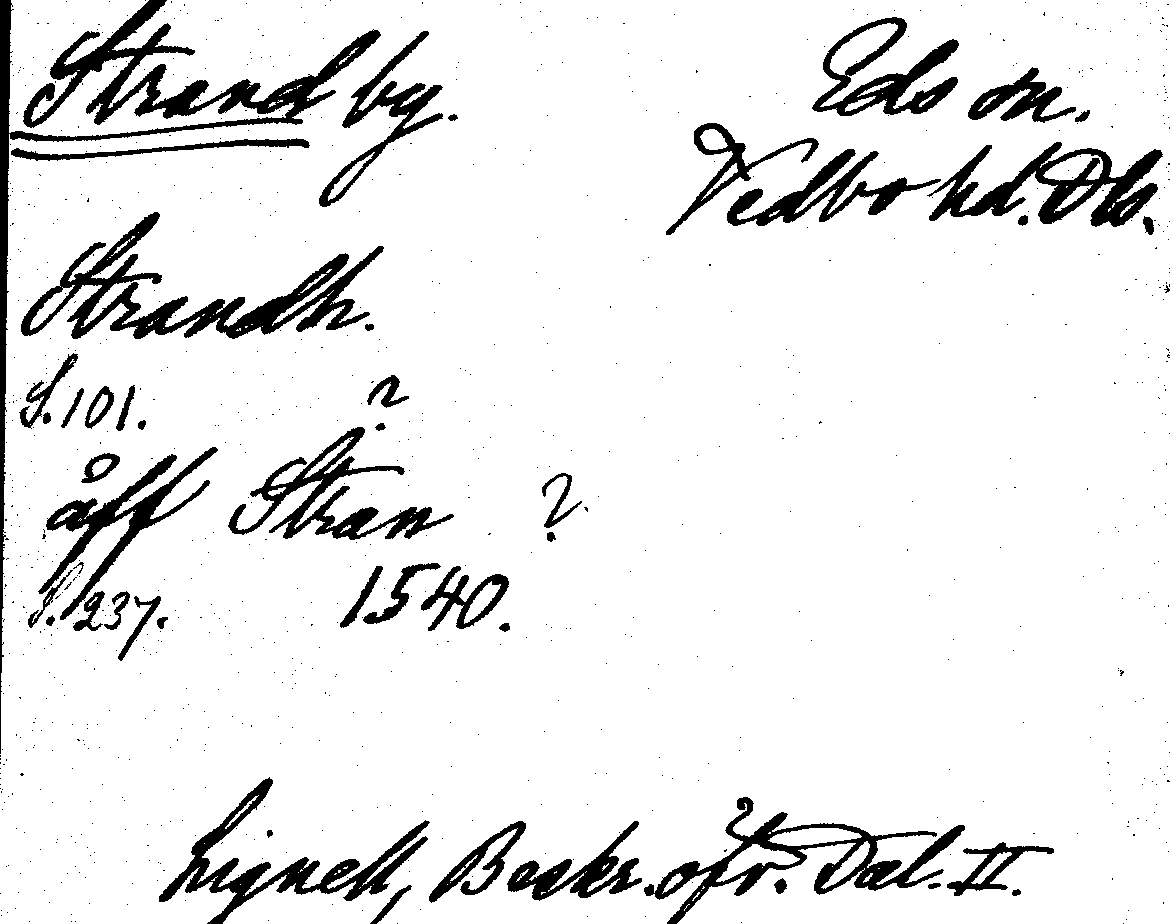 Strand by.
Eds sn.
Vedbo hd. Dls.
Strandh.
S. 101. ?
åff Stran ?
S. 237. 1540.
Lignell, Beskr. öfv. Dal. II.